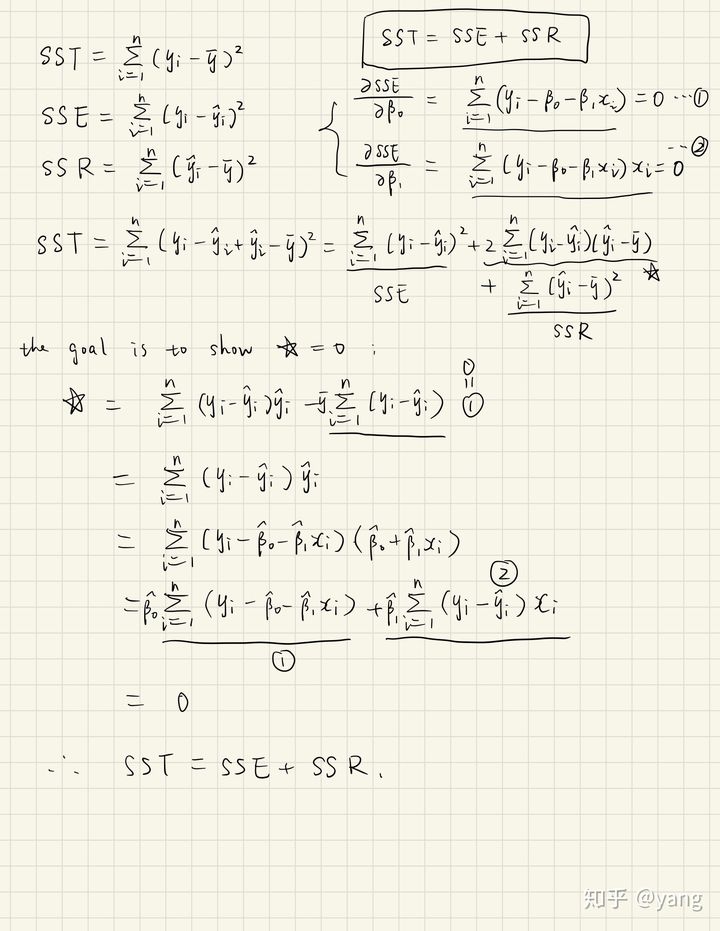 SST = SSE + SSR
SST = \sum_{i=1}^{n} (y_i - \bar{y})^2
SSE = \sum_{i=1}^{n} (y_i - \hat{y}_i)^2
SSR = \sum_{i=1}^{n} (\hat{y}_i - \bar{y})^2
{ \frac{\partial SSE}{\partial \beta_0} = \sum_{i=1}^{n} (y_i - \beta_0 - \beta_1 x_i) = 0 ... ①
\frac{\partial SSE}{\partial \beta_1} = \sum_{i=1}^{n} (y_i - \beta_0 - \beta_1 x_i) x_i = 0 ... ②
SST = \sum_{i=1}^{n} (y_i - \hat{y}_i + \hat{y}_i - \bar{y})^2 = \sum_{i=1}^{n} (y_i - \hat{y}_i)^2 + 2 \sum_{i=1}^{n} (y_i - \hat{y}_i)(\hat{y}_i - \bar{y})
SSE ☆
+ \sum_{i=1}^{n} (\hat{y}_i - \bar{y})^2
SSR
the goal is to show ☆ = 0 :
☆ = \sum_{i=1}^{n} (y_i - \hat{y}_i) \hat{y}_i - \bar{y} \sum_{i=1}^{n} (y_i - \hat{y}_i) 0 = ①
= \sum_{i=1}^{n} (y_i - \hat{y}_i) \hat{y}_i
= \sum_{i=1}^{n} (y_i - \hat{\beta}_0 - \hat{\beta}_1 x_i)(\hat{\beta}_0 + \hat{\beta}_1 x_i)
= \hat{\beta}_0 \sum_{i=1}^{n} (y_i - \hat{\beta}_0 - \hat{\beta}_1 x_i) + \hat{\beta}_1 \sum_{i=1}^{n} (y_i - \hat{y}_i) x_i
① ②
= 0
∴ SST = SSE + SSR.
知乎 @yang